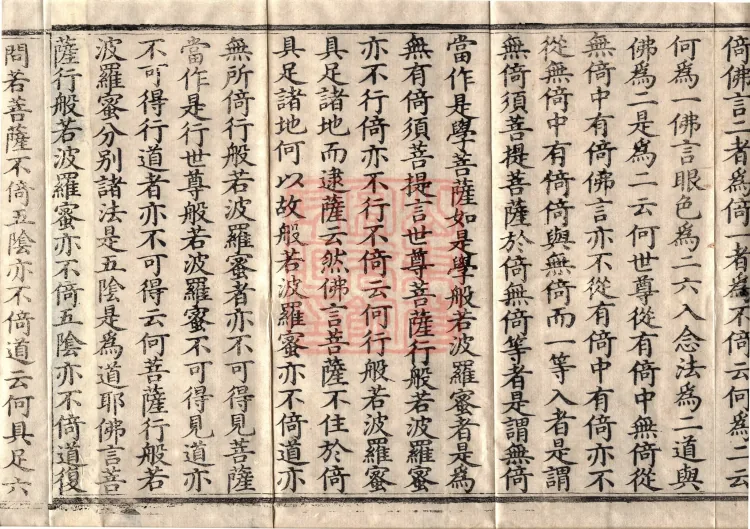 倚佛言二者為倚一者為不倚云何為二云
何為一佛言眼色為二六入念法為二道與
佛為二是為二云何世尊從有倚中無倚從
無倚中有倚佛言亦不從有倚中有倚亦不
從無倚中有倚倚與無倚而一等入者是謂
無倚須菩提菩薩於倚無倚等者是謂無倚
當作是學菩薩如是學般若波羅蜜者是為
無有倚須菩提言世尊菩薩行般若波羅蜜
亦不行倚亦不行不倚云何行般若波羅蜜
具足諸地而逮薩云然佛言菩薩不住於倚
具足諸地何以故般若波羅蜜亦不倚道亦
無所倚行般若波羅蜜者亦不可得見菩薩
當作是行世尊般若波羅蜜不可得見道亦
不可得行道者亦不可得云何菩薩行般若
波羅蜜分別諸法是五陰是為道耶佛言菩
薩行般若波羅蜜亦不倚五陰亦不倚道復
問若菩薩不倚五陰亦不倚道云何具足六